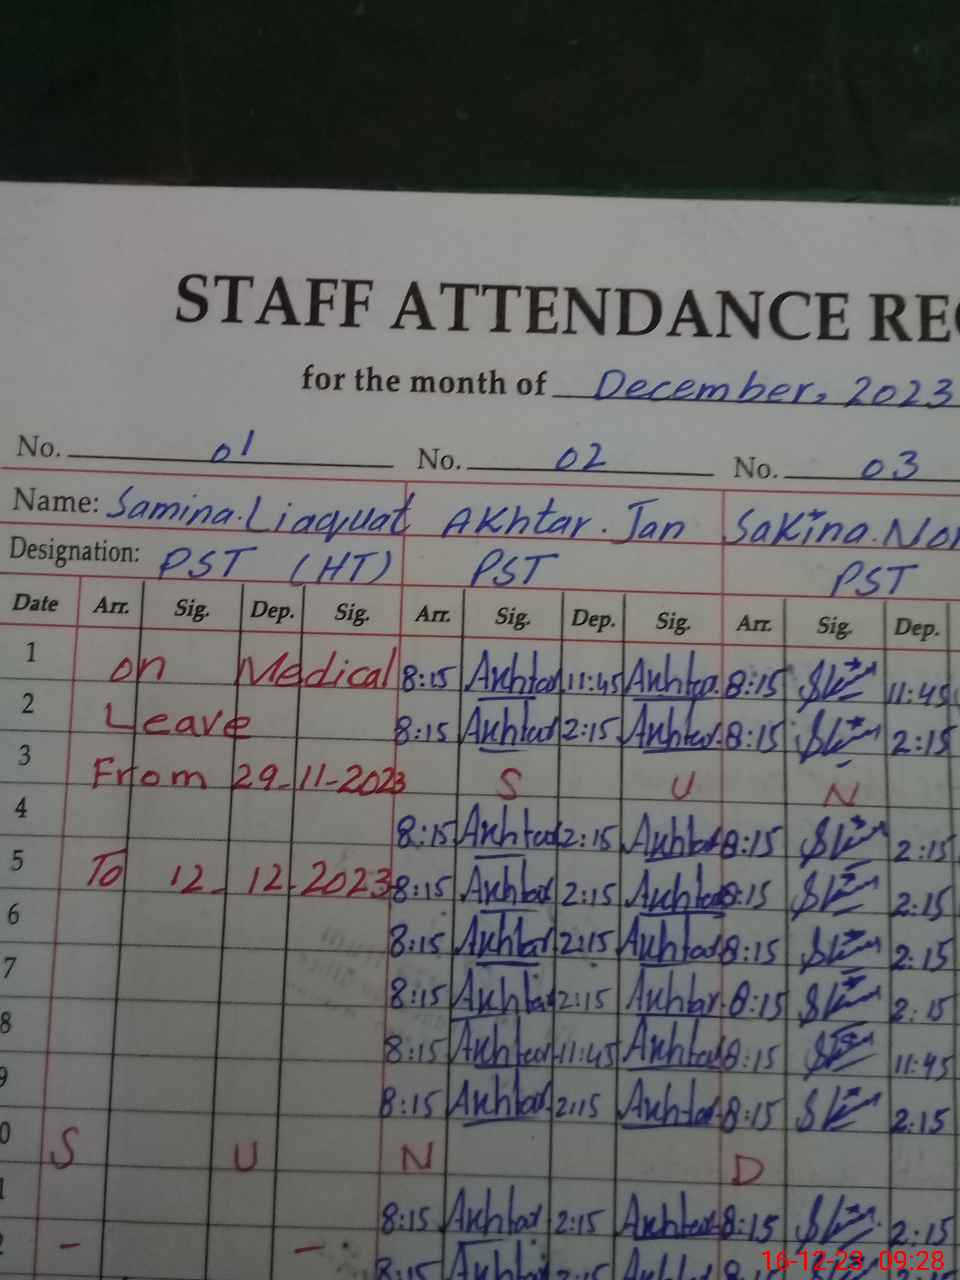 STAFF ATTENDANCE RE
for the month of December, 2023
No. 01 No. 02 No. 03
Name: Samina.Liaquat Akhtar.Jan Sakina.No
Designation: PST (HT) PST PST
Date Arr. Sig. Dep. Sig. Arr. Sig. Dep. Sig. Arr. Sig. Dep.
1 on Medical 8:15 Akhtar 11:45 Akhtar 8:15 11:45
2 Leave 8:15 Akhtar 2:15 Akhtar 8:15 2:15
3 From 29-11-2023 S U N
4 8:15 Akhtar 2:15 Akhtar 8:15 2:15
5 To 12-12-2023 8:15 Akhtar 2:15 Akhtar 8:15 2:15
6 8:15 Akhtar 2:15 Akhtar 8:15 2:15
7 8:15 Akhtar 2:15 Akhtar 8:15 2:15
8 8:15 Akhtar 11:45 Akhtar 8:15 11:45
9 8:15 Akhtar 2:15 Akhtar 8:15 2:15
0 S U N D
1 8:15 Akhtar 2:15 Akhtar 8:15 2:15
2 - - 8:15 Akhtar 2:15 Akhtar
16-12-23 09:28